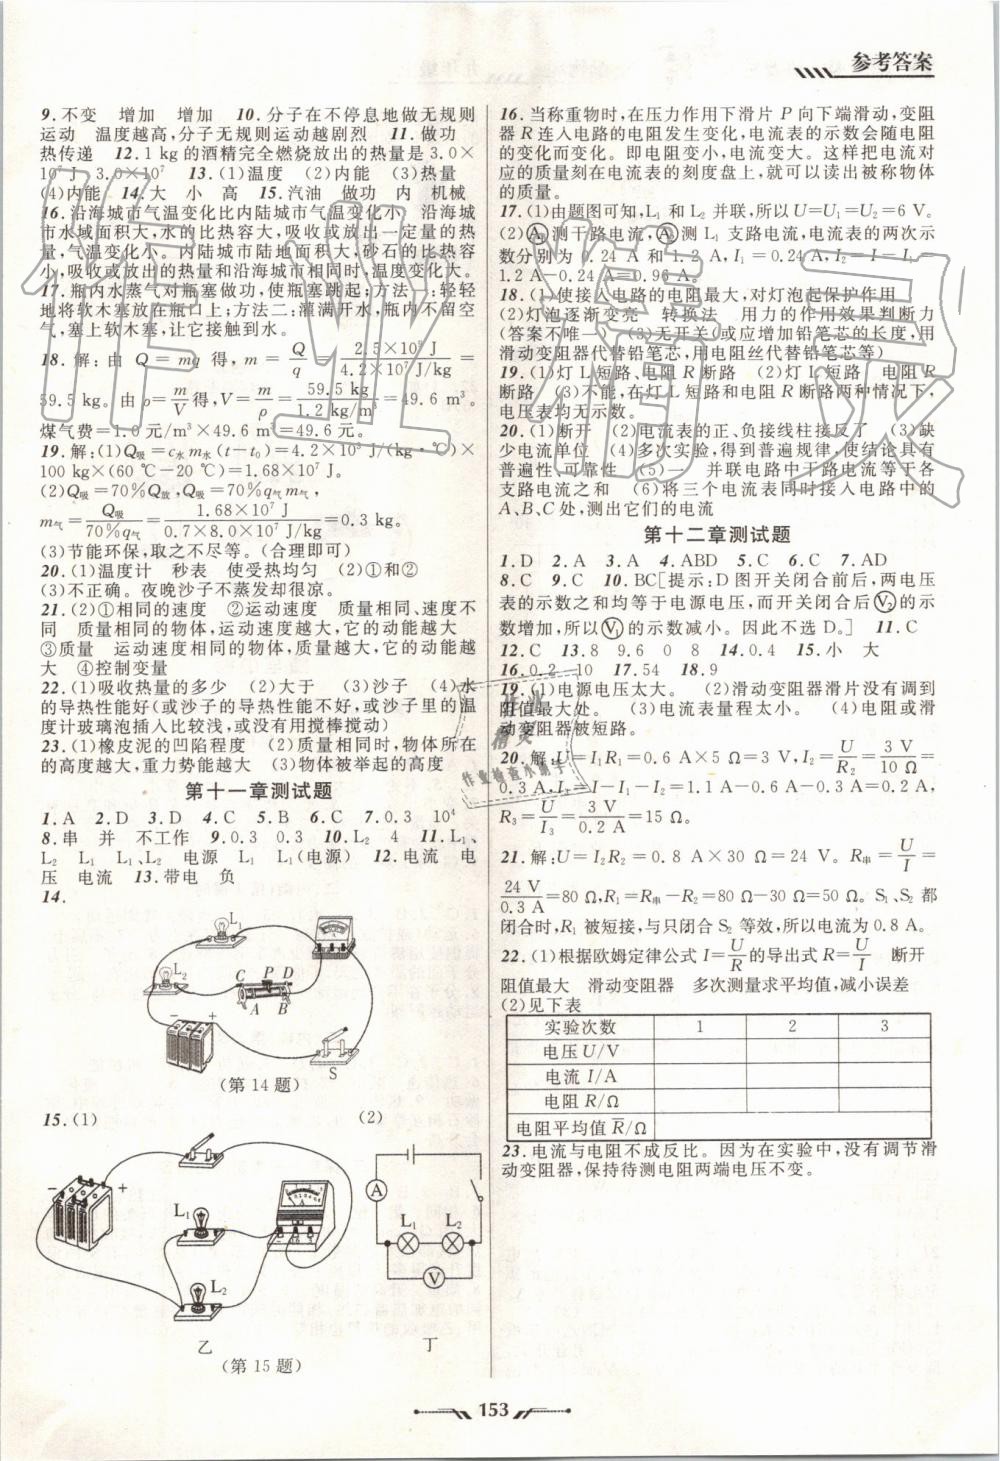 参考答案
9.不变　增加　增加　10.分子在不停息地做无规则
运动　温度越高,分子无规则运动越剧烈　11.做功
热传递　12.1 kg的酒精完全燃烧放出的热量是3.0×
10⁷ J　3.0×10⁷　13.(1)温度　(2)内能　(3)热量
(4)内能　14.大　小　高　15.汽油　做功　内　机械
16.沿海城市气温变化比内陆城市气温变化小　沿海城
市水域面积大,水的比热容大,吸收或放出一定量的热
量,气温变化小。内陆城市陆地面积大,砂石的比热容
小,吸收或放出的热量和沿海城市相同时,温度变化大。
17.瓶内水蒸气对瓶塞做功,使瓶塞跳起;方法一:轻轻
地将软木塞放在瓶口上;方法二:灌满开水,瓶内不留空
气,塞上软木塞,让它接触到水。
18.解:由 Q=mq 得,m=Q/q=2.5×10⁹ J/4.2×10⁷ J/kg=
59.5 kg。由ρ=m/V得,V=m/ρ=59.5 kg/1.2 kg/m³=49.6 m³。
煤气费=1.0元/m³×49.6 m³=49.6元。
19.解:(1)Q吸=c水m水(t-t₀)=4.2×10³ J/(kg·℃)×
100 kg×(60 ℃-20 ℃)=1.68×10⁷ J。
(2)Q吸=70%Q放,Q吸=70%q气m气,
m气=Q吸/70%q气=1.68×10⁷ J/0.7×8.0×10⁷ J/kg=0.3 kg。
(3)节能环保,取之不尽等。(合理即可)
20.(1)温度计　秒表　使受热均匀　(2)①和②
(3)不正确。夜晚沙子不蒸发却很凉。
21.(2)①相同的速度　②运动速度　质量相同、速度不
同　质量相同的物体,运动速度越大,它的动能越大
③质量　运动速度相同的物体,质量越大,它的动能越
大　④控制变量
22.(1)吸收热量的多少　(2)大于　(3)沙子　(4)水
的导热性能好(或沙子的导热性能不好,或沙子里的温
度计玻璃泡插入比较浅,或没有用搅棒搅动)
23.(1)橡皮泥的凹陷程度　(2)质量相同时,物体所在
的高度越大,重力势能越大　(3)物体被举起的高度
第十一章测试题
1.A　2.D　3.D　4.C　5.B　6.C　7.0.3　10⁴
8.串　并　不工作　9.0.3　0.3　10.L₂　4　11.L₁、
L₂　L₁　L₁、L₂　电源　L₁　L₁(电源)　12.电流　电
压　电流　13.带电　负
14.
L₁
L₂
C　P　D
A　B
−　+
S
(第14题)
15.(1)　(2)
−　+
L₁
L₂
乙
A
L₁　L₂
V
丁
(第15题)
16.当称重物时,在压力作用下滑片 P 向下端滑动,变阻
器R连入电路的电阻发生变化,电流表的示数会随电阻
的变化而变化。即电阻变小,电流变大。这样把电流对
应的质量刻在电流表的刻度盘上,就可以读出被称物体
的质量。
17.(1)由题图可知,L₁ 和 L₂ 并联,所以U=U₁=U₂=6 V。
(2)Ⓐ测干路电流,Ⓐ₁测 L₁ 支路电流,电流表的两次示
数分别为 0.24 A 和 1.2 A,I₁=0.24 A,I₂=I-I₁=
1.2 A-0.24 A=0.96 A。
18.(1)使接入电路的电阻最大,对灯泡起保护作用
(2)灯泡逐渐变亮　转换法　用力的作用效果判断力
(答案不唯一)　(3)无开关(或应增加铅笔芯的长度,用
滑动变阻器代替铅笔芯,用电阻丝代替铅笔芯等)
19.(1)灯 L 短路、电阻 R 断路　(2)灯 L 短路　电阻 R
断路　(3)不能,在灯 L 短路和电阻 R 断路两种情况下,
电压表均无示数。
20.(1)断开　(2)电流表的正、负接线柱接反了　(3)缺
少电流单位　(4)多次实验,得到普遍规律,使结论具有
普遍性、可靠性　(5)一　并联电路中干路电流等于各
支路电流之和　(6)将三个电流表同时接入电路中的
A、B、C处,测出它们的电流
第十二章测试题
1.D　2.A　3.A　4.ABD　5.C　6.C　7.AD
8.C　9.C　10.BC[提示:D图开关闭合前后,两电压
表的示数之和均等于电源电压,而开关闭合后V₂的示
数增加,所以V₁的示数减小。因此不选D。]　11.C
12.C　13.8　9.6　0　8　14.0.4　15.小　大
16.0.2　10　17.54　18.9
19.(1)电源电压太大。　(2)滑动变阻器滑片没有调到
阻值最大处。　(3)电流表量程太小。　(4)电阻或滑
动变阻器被短路。
20.解:U=I₁R₁=0.6 A×5 Ω=3 V,I₂=U/R₂=3 V/10 Ω=
0.3 A,I₃=I-I₁-I₂=1.1 A-0.6 A-0.3 A=0.2 A,
R₃=U/I₃=3 V/0.2 A=15 Ω。
21.解:U=I₂R₂=0.8 A×30 Ω=24 V。R串=U/I=
24 V/0.3 A=80 Ω,R₁=R串-R₂=80 Ω-30 Ω=50 Ω。S₁、S₂ 都
闭合时,R₁ 被短接,与只闭合 S₂ 等效,所以电流为 0.8 A。
22.(1)根据欧姆定律公式 I=U/R 的导出式 R=U/I　断开
阻值最大　滑动变阻器　多次测量求平均值,减小误差
(2)见下表
实验次数　1　2　3
电压 U/V
电流 I/A
电阻 R/Ω
电阻平均值 R̄/Ω
23.电流与电阻不成反比。因为在实验中,没有调节滑
动变阻器,保持待测电阻两端电压不变。
153
作业精灵
作业
精灵
作业检查小助手